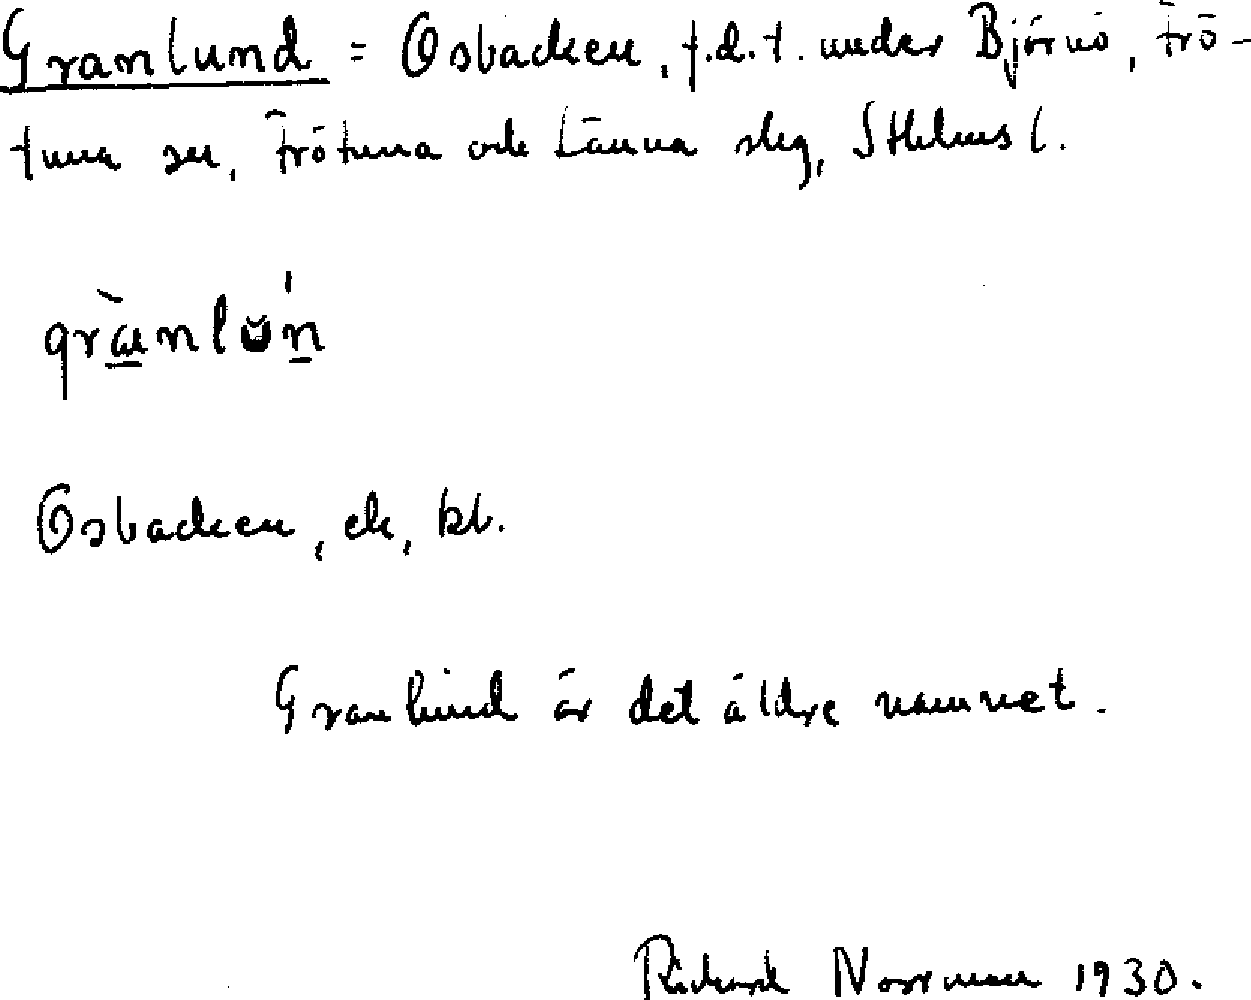 Granlund = Osbacken, f.d.t. under Björnö, Frö-
tuna sn, Frötuna och Länna slg, Sthlms l.
grànlŭn
Osbacken, ek, kt.
Granlund är det äldre namnet.
Rickard Norrman 1930.